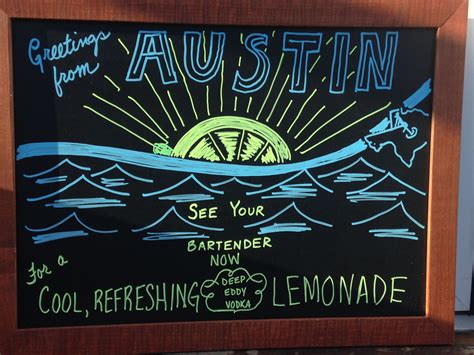 Greetings
from
AUSTIN
SEE YOUR
BARTENDER
NOW
For a
COOL, REFRESHING DEEP EDDY VODKA LEMONADE